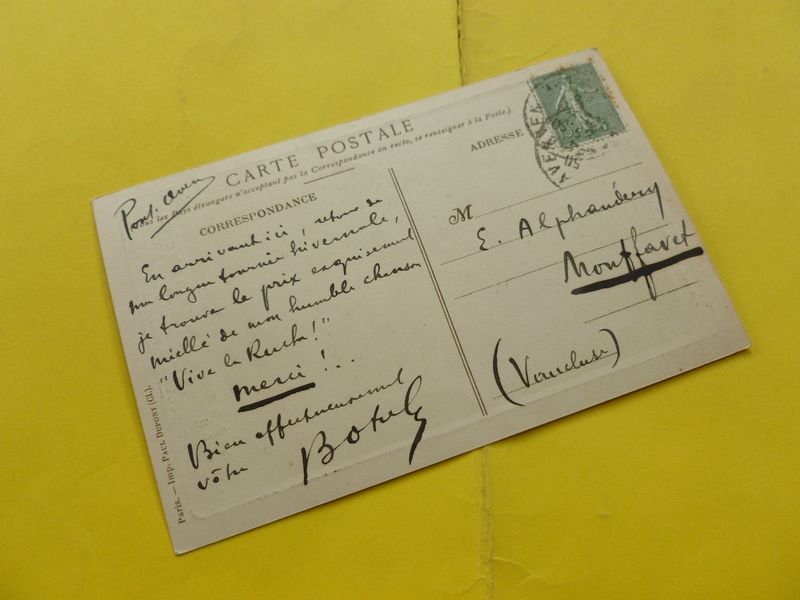 CARTE POSTALE
Tous les Pays étrangers n'acceptant pas la Correspondance au recto, se renseigner à la Poste.)
Pont-Aven
CORRESPONDANCE
ADRESSE
En arrivant ici, retour de
ma longue tournée hivernale,
je trouve le prix exquisement
miellé de mon humble chanson
"Vive la Ruche!"
merci !..
Bien affectueusement
vôtre
Botrel
M
E. Alphandéry
Montfavet
(Vaucluse)
Paris. — Imp. Paul Dupont (Cl.).